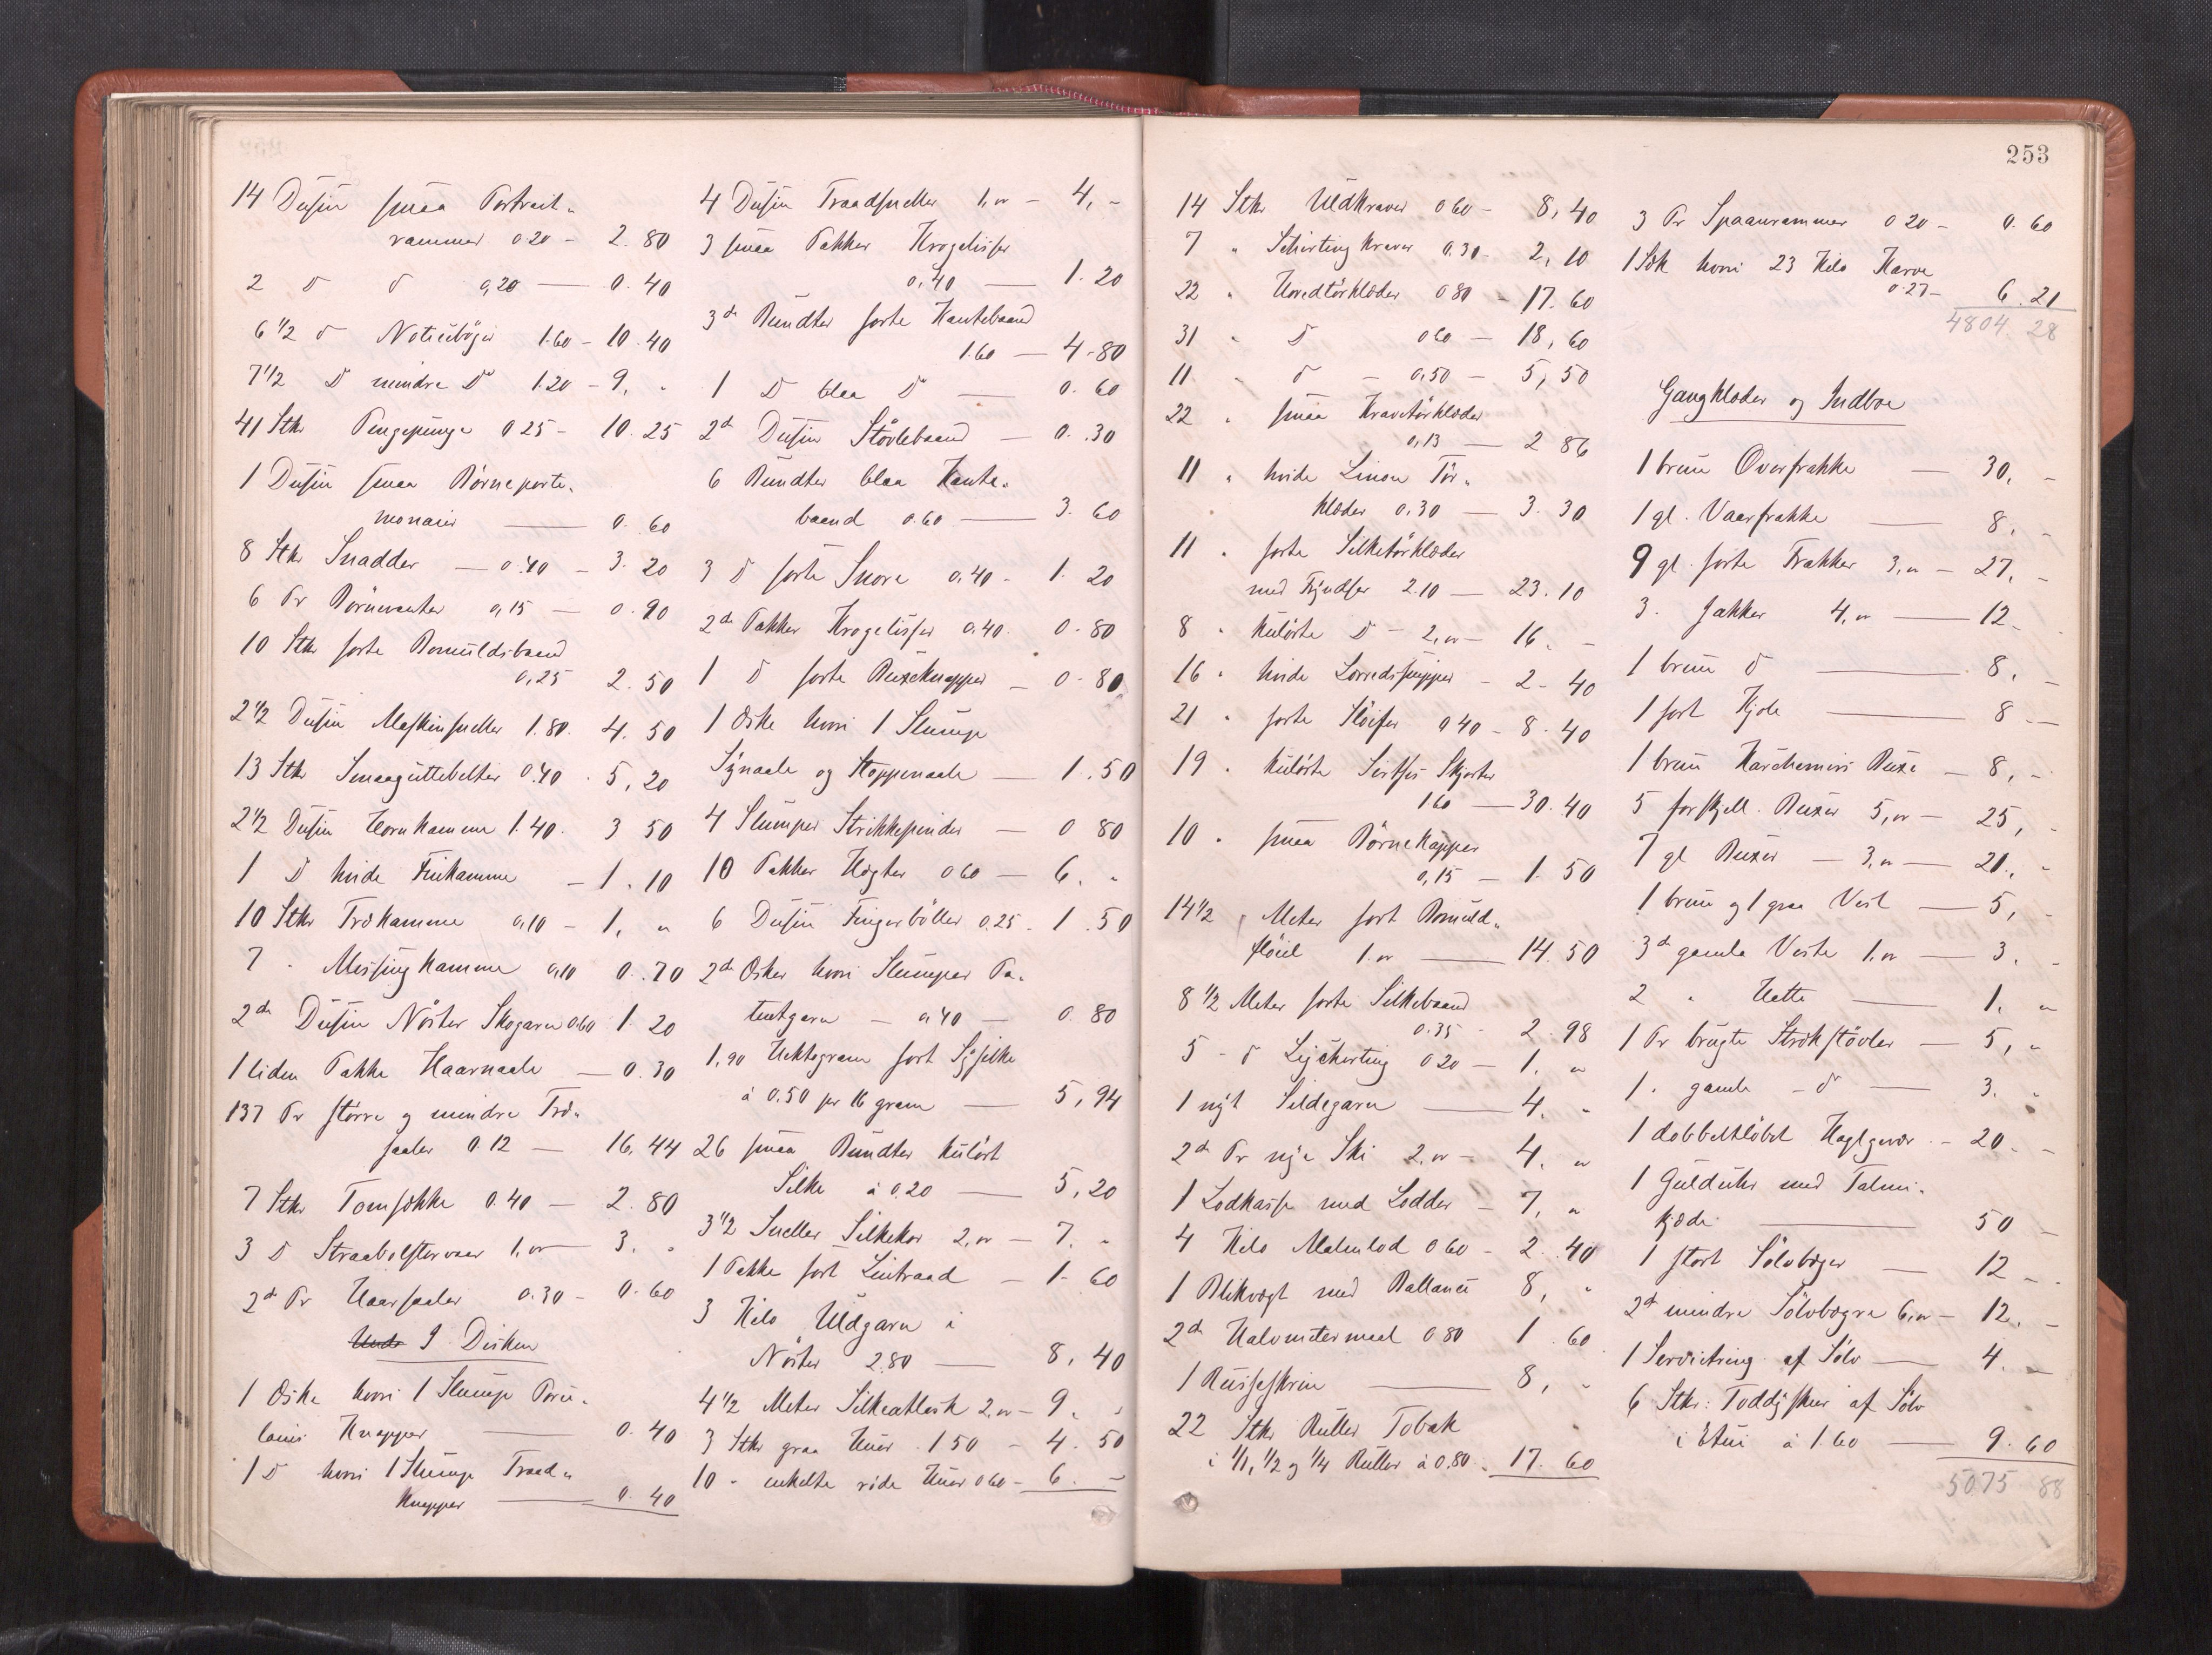 14 Dusin smaa Portrait-
rammer 0.20 - 2.80
2 D D 0,20 — 0.40
6 1/2 D Noticebøger 1.60 - 10.40
7 1/2 D mindre D 1.20 - 9. "
41 Stkr Pengepunge 0.25 - 10.25
1 Dusin smaa Børneporte-
monaier — 0.60
8 Stkr Snadder — 0.40 - 3.20
6 Pr Børnevanter 0,15 — 0.90
10 Stkr sorte Bomuldsbaand
0,25 2.50
2 1/2 Dusin Maskinsneller 1.80. 4.50
13 Stkr Smaaguttebelter 0.40 . 5,20
2 1/2 Dusin Hornkamme 1.40. 3 50
1 D hvide Finkamme - 1.10
10 Stkr Trækamme 0,10 - 1, "
7 " Messingkamme 0,10 0.70
2de Dusin Nøster Skogarn 0.60 1.20
1 liden Pakke Haarnaale — 0.30
137 Pr større og mindre Træ-
saaler 0.12 — 16,44
7 Stkr Tomsække 0.40 — 2.80
3 D Straabolstervaar 1,00 3. "
2de Pr Haarsaaler 0.30 - 0.60
I Disken
1 Æske hvori 1 Slump Porce-
lains Knapper — 0.40
1 D hvori 1 Slump Traad-
knapper — 0.40
4 Dusin Traadsneller 1,00 - 4, -
3 smaa Pakker Krogelisser
0,40 — 1.20
3de Bundter sorte Kantebaand
1.60 — 4.80
1 D blaa D — 0.60
2de Dusin Støvlebaand — 0.30
6 Bundter blaa Kante-
baand 0.60 — 3.60
3 D sorte Snore 0,40 - 1.20
2de Pakker Krogelisser 0.40. 0.80
1 D sorte Buxeknapper — 0.80
1 Æske hvori 1 Slump
Synaale og Stoppenaale — 1.50
4 Slumper Strikkepinder — 0 80
10 Pakker Hægter 0.60 — 6. "
6 Dusin Fingerbøller 0.25. 1.50
2de Æsker hvori Slumper Pa-
tentgarn — 0,40 — 0.80
1,90 Hektogram sort Sysilke
à 0.50 pr 16 gram — 5,94
26 smaa Bundter kulørt
Silke à 0.20 — 5,20
3 1/2 Sneller Silkekor 2,00 — 7. "
1 Pakke sort Lintraad — 1.60
3 Kilo Uldgarn i
Nøster 2.80 — 8,40
4 1/2 Meter Silkeatlask 2,00 - 9. "
3 Stkr graa Huer 1.50 - 4.50
10 " enkelte røde Huer 0.60 - 6. -
14 Stkr Uldkraver 0.60 - 8,40
7 " Schirtingkraver 0.30 - 2,10
22 " Hovedtørklæder 0.80 - 17.60
31 " D 0.60 — 18,60
11 " D — 0,50 - 5,50
22 " smaa Kravetørklæder
0,13 — 2 86
11 " hvide Linon Tør-
klæder 0,30 — 3.30
11 " sorte Silketørklæder
med Fryndser 2.10 — 23.10
8 " kulørte D - 2,00 - 16. -
16 " hvide Lærredspiper - 2.40
21 " sorte Sløifer 0.40 - 8.40
19 " kulørte Sirtses Skjorter
1.60 — 30.40
10 " smaa Børnekapper
0,15 — 1.50
14 1/2 Meter sort Bomulds-
fløiel 1.00 — 14.50
8 1/2 Meter sorte Silkebaand
0.35 - 2.98
5 - D 0.20 — 1. "
1 nyt Sildegarn — 4. "
2de Pr nye Ski 2.00 - 4. "
1 Lodkasse med Lodder - 7, "
4 Kilo Malmlod 0.60 - 2.40
1 Blikvægt med Ballance 8, "
2de Halvmetermaal 0.80 1.60
1 Reiseskrin — 8, "
22 Stkr Ruller Tobak
i 1/1, 1/2 og 1/4 Ruller à 0,80. 17.60
253
3 Pr Spaanrammer 0.20 - 0.60
1 Sæk hvori 23 Kilo Karve
0.27 - 6.21
4804 28
Gangklæder og Indbo
1 brun Overfrakke — 30, -
1 gl. Vaarfrakke — 8, -
9 gl. sorte Frakker 3,00 - 27, -
3. Jakker 4,00 — 12 -
1 brun D — 8, -
1 sort Kjole — 8 -
1 brun Buxe — 8, -
5 forskjell. Buxer 5,00 - 25, -
7 gl Buxer — 3,00 — 21, "
1 brun og 1 graa Vest — 5, -
3de gamle Veste 1,00 — 3. -
2 " Hatte — 1. "
1 Pr brugte Strækstøvler — 5, "
1. gamle - D — 3. "
1 dobbeltløbet Haglgevær - 20. -
1 Guldur med Talmi-
kjæde — 50 -
1 stort Sølvbæger — 12 -
2de mindre Sølvbægre 6,00 - 12. -
1 Servietring af Sølv — 4. -
6 Stkr: Toddyskeer af Sølv
i Etui à 1.60 — 9.60
5075 88